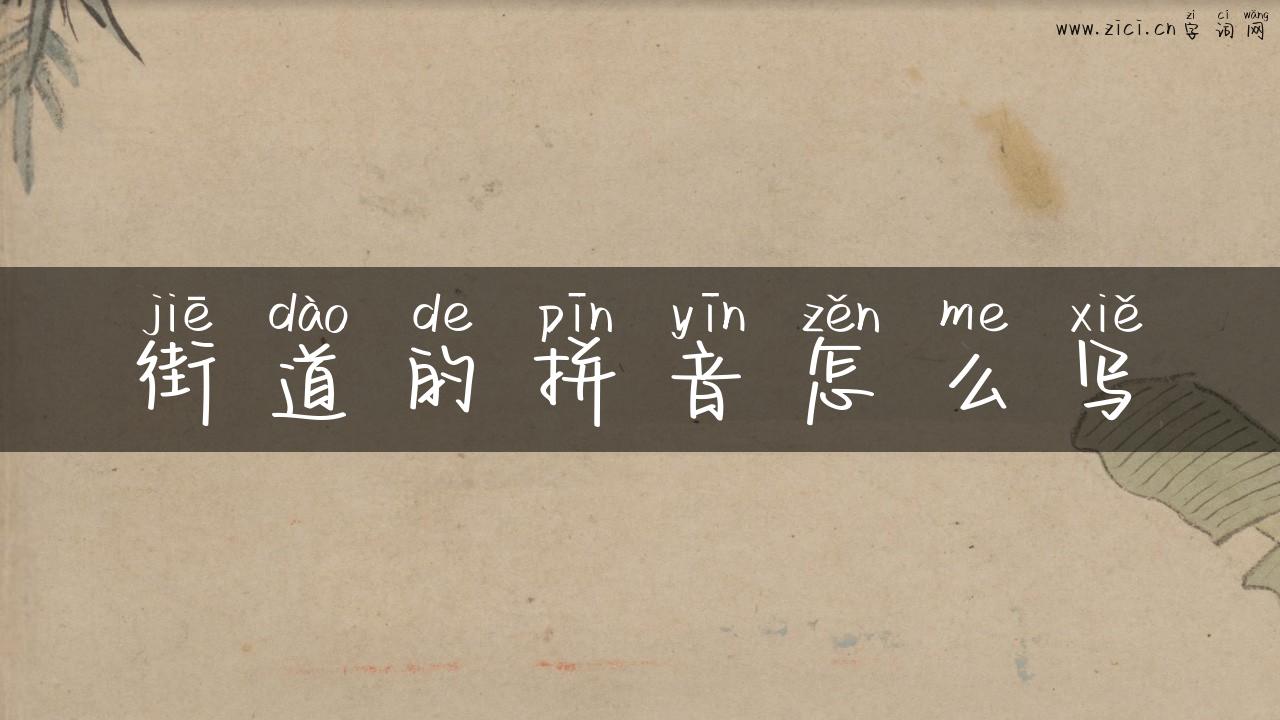 zì cí wǎng
www.zici.cn 字 词 网
jiē dào de pīn yīn zěn me xiě
街 道 的 拼 音 怎 么 写